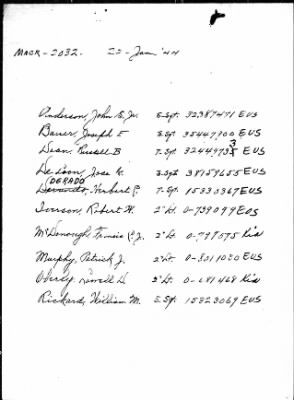 MACR-2032. 22-Jan '44
Anderson, John E. Jr. S. Sgt. 32387471 EUS
Bauer, Joseph E S. Sgt. 35447900 EUS
Dean, Russell B T. Sgt. 32449733 EUS
De Leon, Jose G. S. Sgt 38159655 EUS
DERADO
Herbert P. T. Sgt. 15330367 EUS
Iverson, Robert W. 2" Lt. 0-739099 EUS
McDonough, Francis P. Jr. 2" Lt. 0-797575 Kia
Murphy, Patrick J. 2" Lt. 0-8011030 EUS
Lowell D 2" Lt. 0-681468 Kia
Rickard, William M. S. Sgt. 15323069 EUS